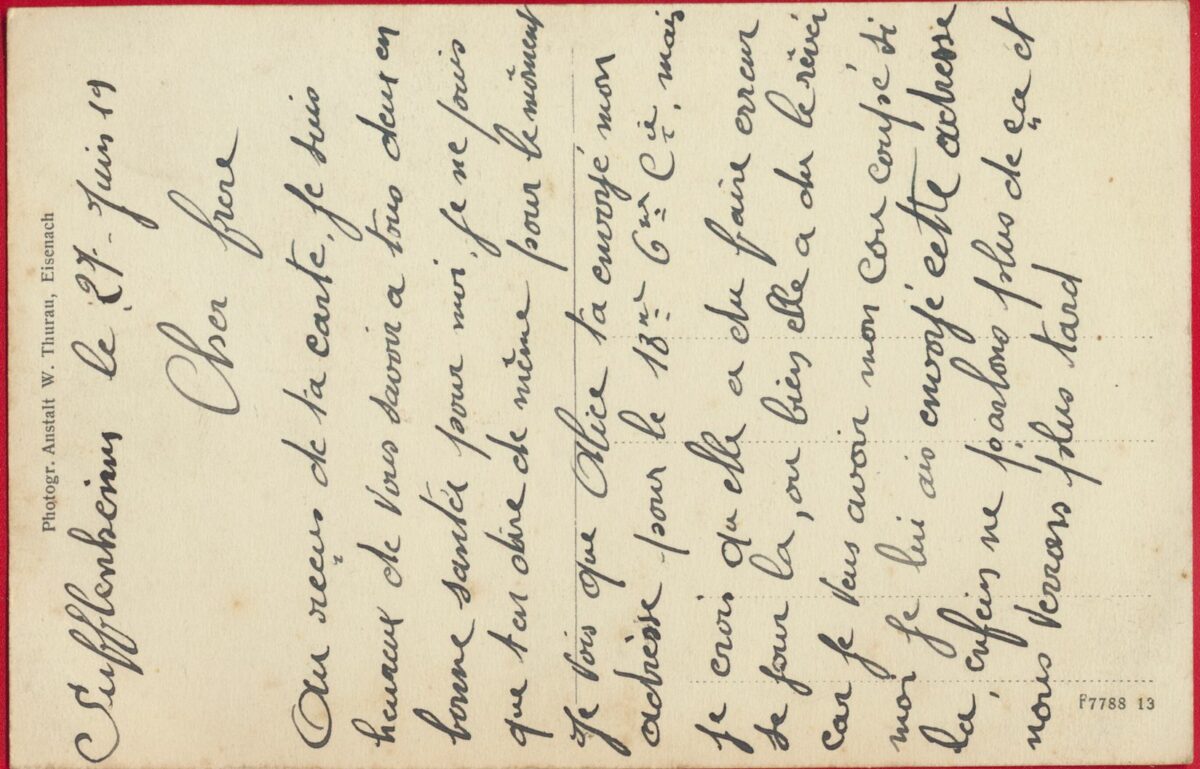 Photogr. Anstalt W. Thurau, Eisenach
Sufflenheim le 27 Juin 19
Cher frere
Au recus de ta carte, je suis
heureux de vous savoir a tous deux en
bonne santée pour moi, je ne puis
que ten dire de même pour le môment
Je vois que Alice ta envoyé mon
adrèsse pour le 18me 6me Cie, mais
je crois qu elle a du faire erreur
se jour la, ou bien elle a du le rêver
car je veus avoir mon cou coupé si
moi je lui ais envoyé cette adresse
la, enfein ne parlons plus de ça et
nous verrons plus tard
P7788 13